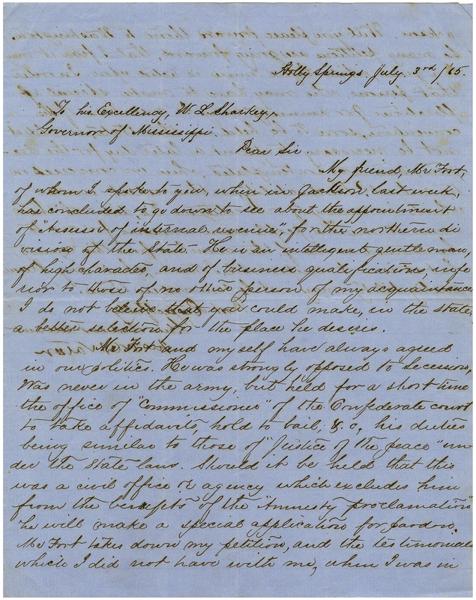 Holly Springs July 3rd /65
To his Excellency, W L Sharkey,
Governor of Mississippi
Dear Sir.
My friend, Mr Fort,
of whom I spoke to you, when in Jackson last week,
has concluded to go down to see about the appointment
of "Assessor of internal revenue, for the northern di
vision of the State. He is an intelligent gentleman,
of high character, and of business qualifications, infe
rior to those of no other person of my acquaintance
I do not believe that you could make, in the state,
a better selection for the place he desires.
Mr Fort and myself have always agreed
in our politics. He was strongly opposed to secession,
Was never in the army, but held for a short time
the office of "Commissioner" of the Confederate court
to take affidavits, hold to bail, &c, his duties
being similar to those of "Justice of the peace" un
der the State laws. Should it be held that this
was a civil office or agency which excludes him
from the benefits of the Amnesty proclamation
he will make a special application for pardon.
Mr Fort takes down my petition, and the testimonials
which I did not have with me, when I was in